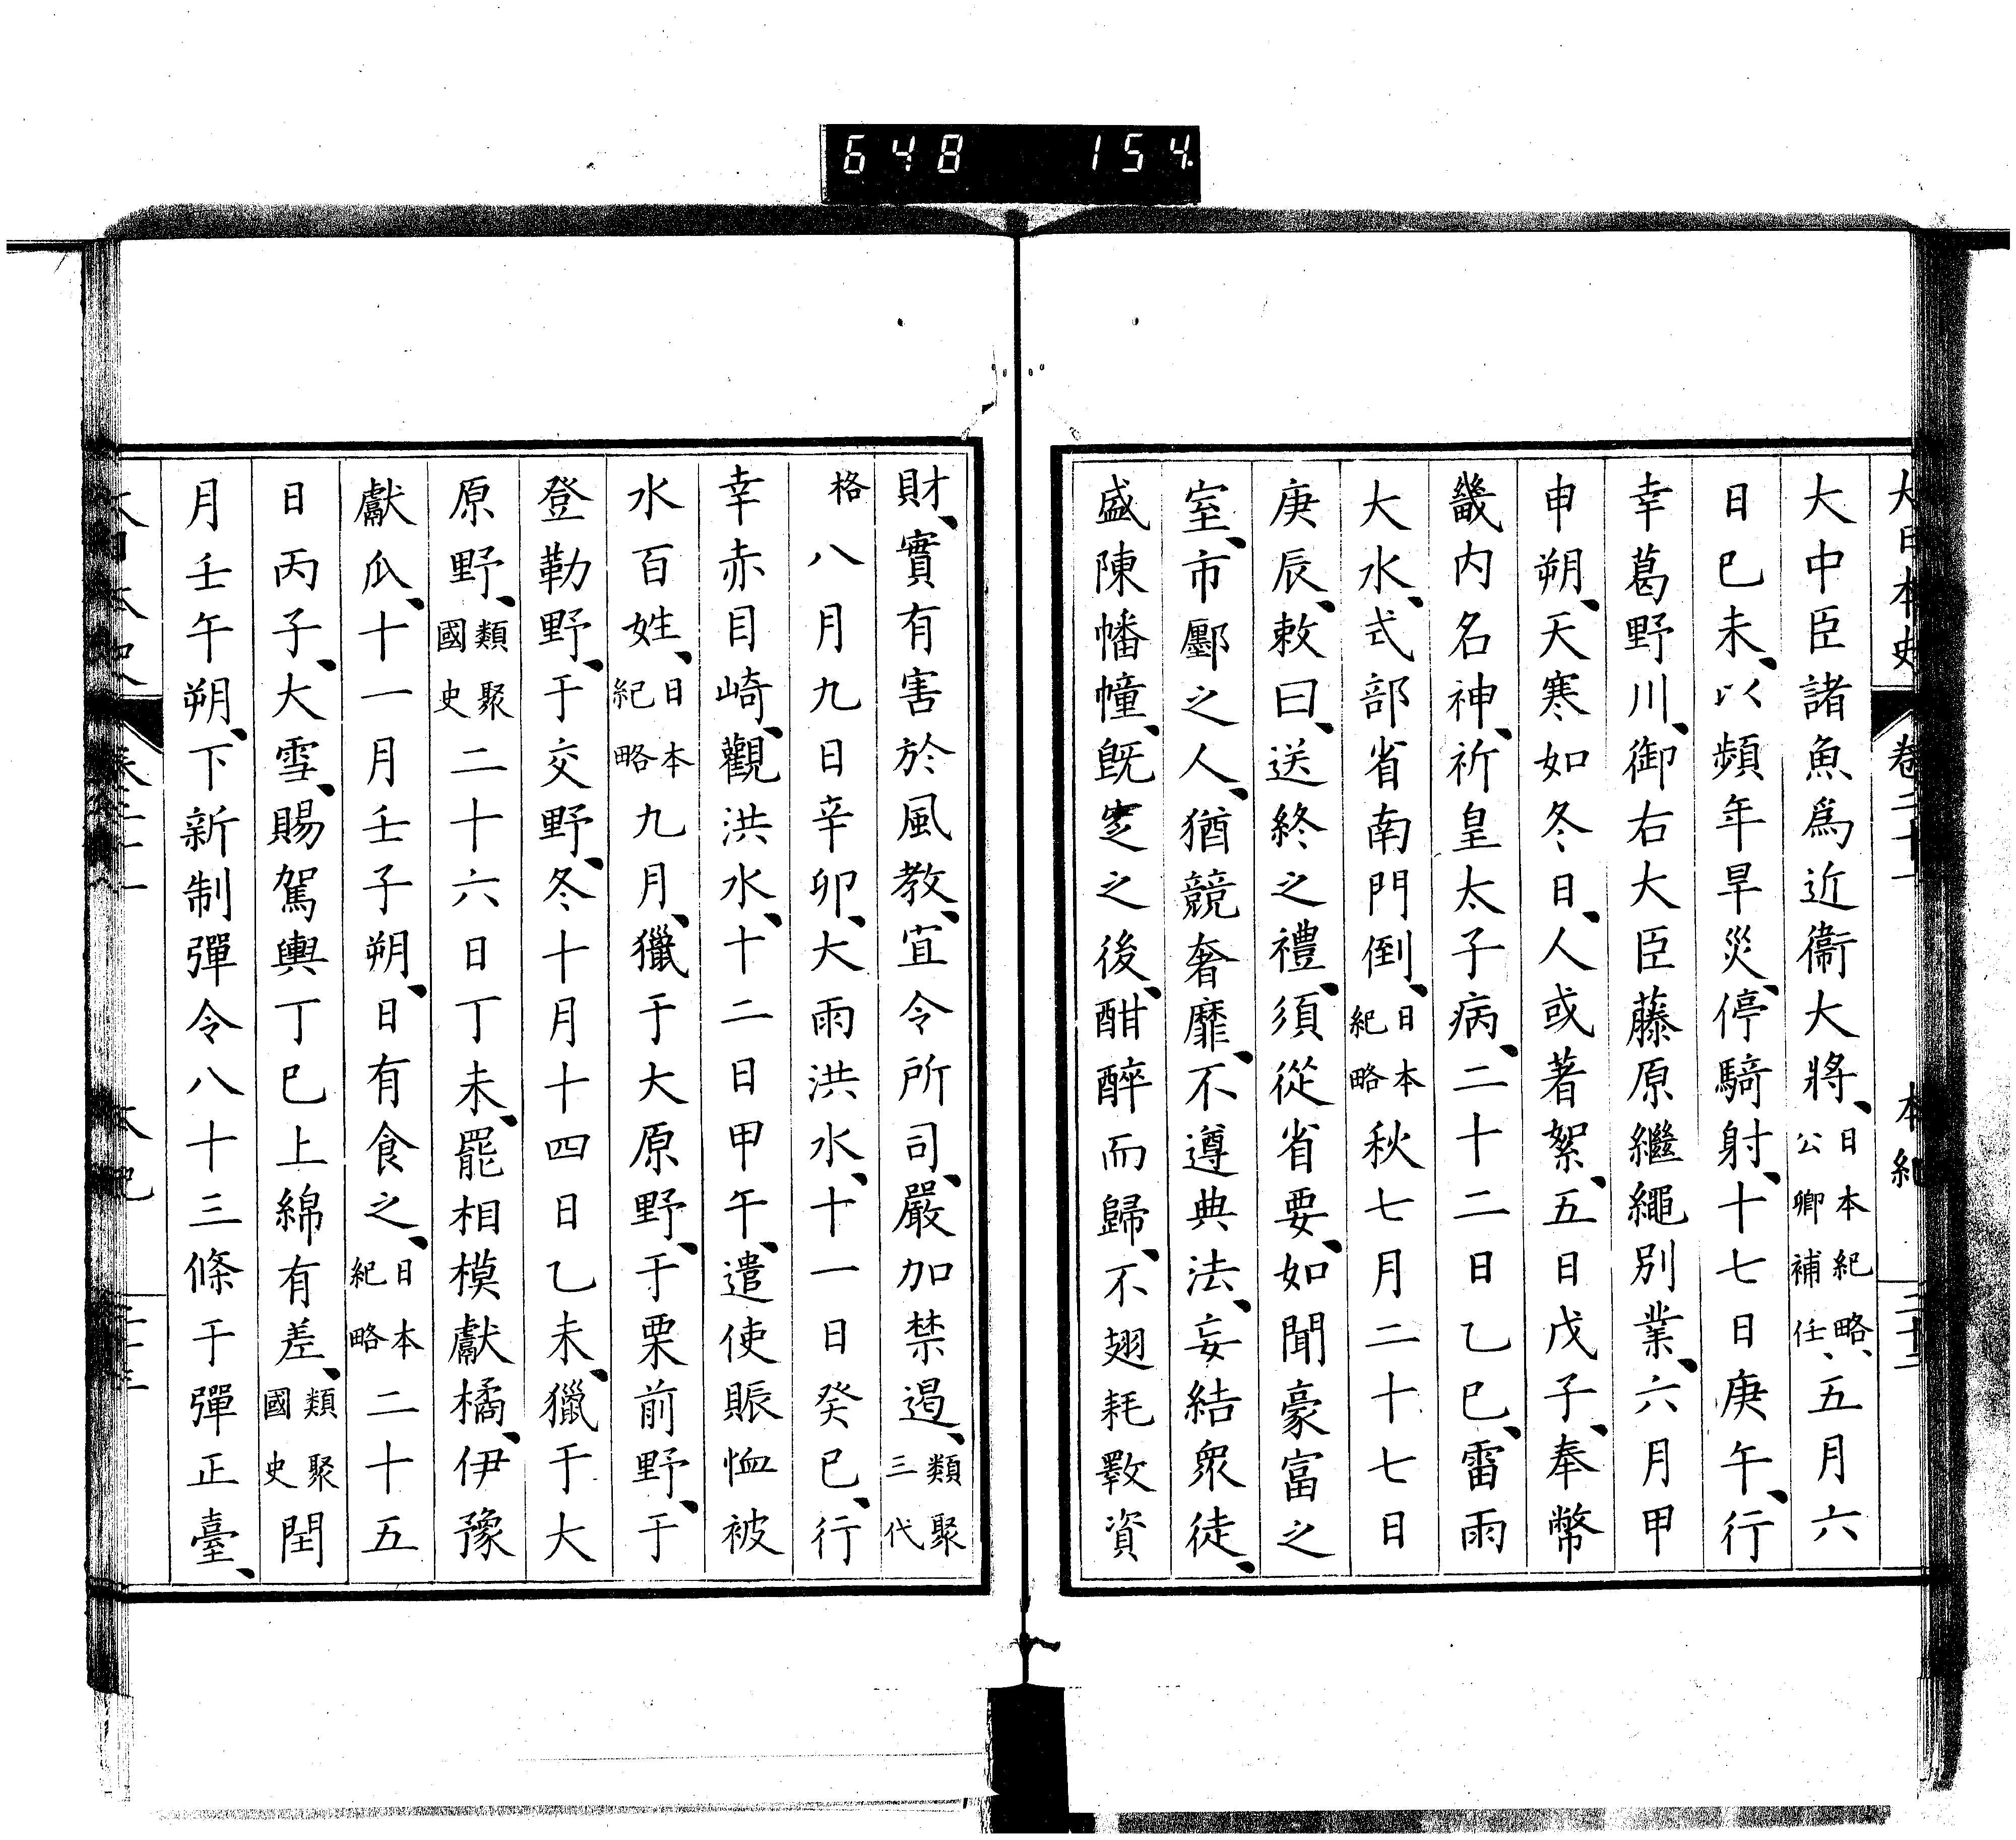 648 154
大日本史 卷二十一 本紀 二十二
大中臣諸魚爲近衞大將、日本紀略、公卿補任、五月六
日己未、以頻年旱災、停騎射、十七日庚午、行
幸葛野川、御右大臣藤原繼繩別業、六月甲
申朔、天寒如冬日、人或著絮、五日戊子、奉幣
畿内名神、祈皇太子病、二十二日乙巳、雷雨
大水、式部省南門倒、日本紀略秋七月二十七日
庚辰、敕曰、送終之禮、須從省要、如聞豪富之
室、市鄽之人、猶競奢靡、不遵典法、妄結衆徒、
盛陳幡幢、既窆之後、酣醉而歸、不翅耗斁資
財、實有害於風教、宜令所司、嚴加禁遏、類聚三代
格八月九日辛卯、大雨洪水、十一日癸巳、行
幸赤目崎、觀洪水、十二日甲午、遣使賑恤被
水百姓、日本紀略九月、獵于大原野、于栗前野、于
登勒野、于交野、冬十月十四日乙未、獵于大
原野、類聚國史二十六日丁未、罷相模獻橘、伊豫
獻瓜、十一月壬子朔、日有食之、日本紀略二十五
日丙子、大雪、賜駕輿丁已上綿有差、類聚國史閏
月壬午朔、下新制彈令八十三條于彈正臺、